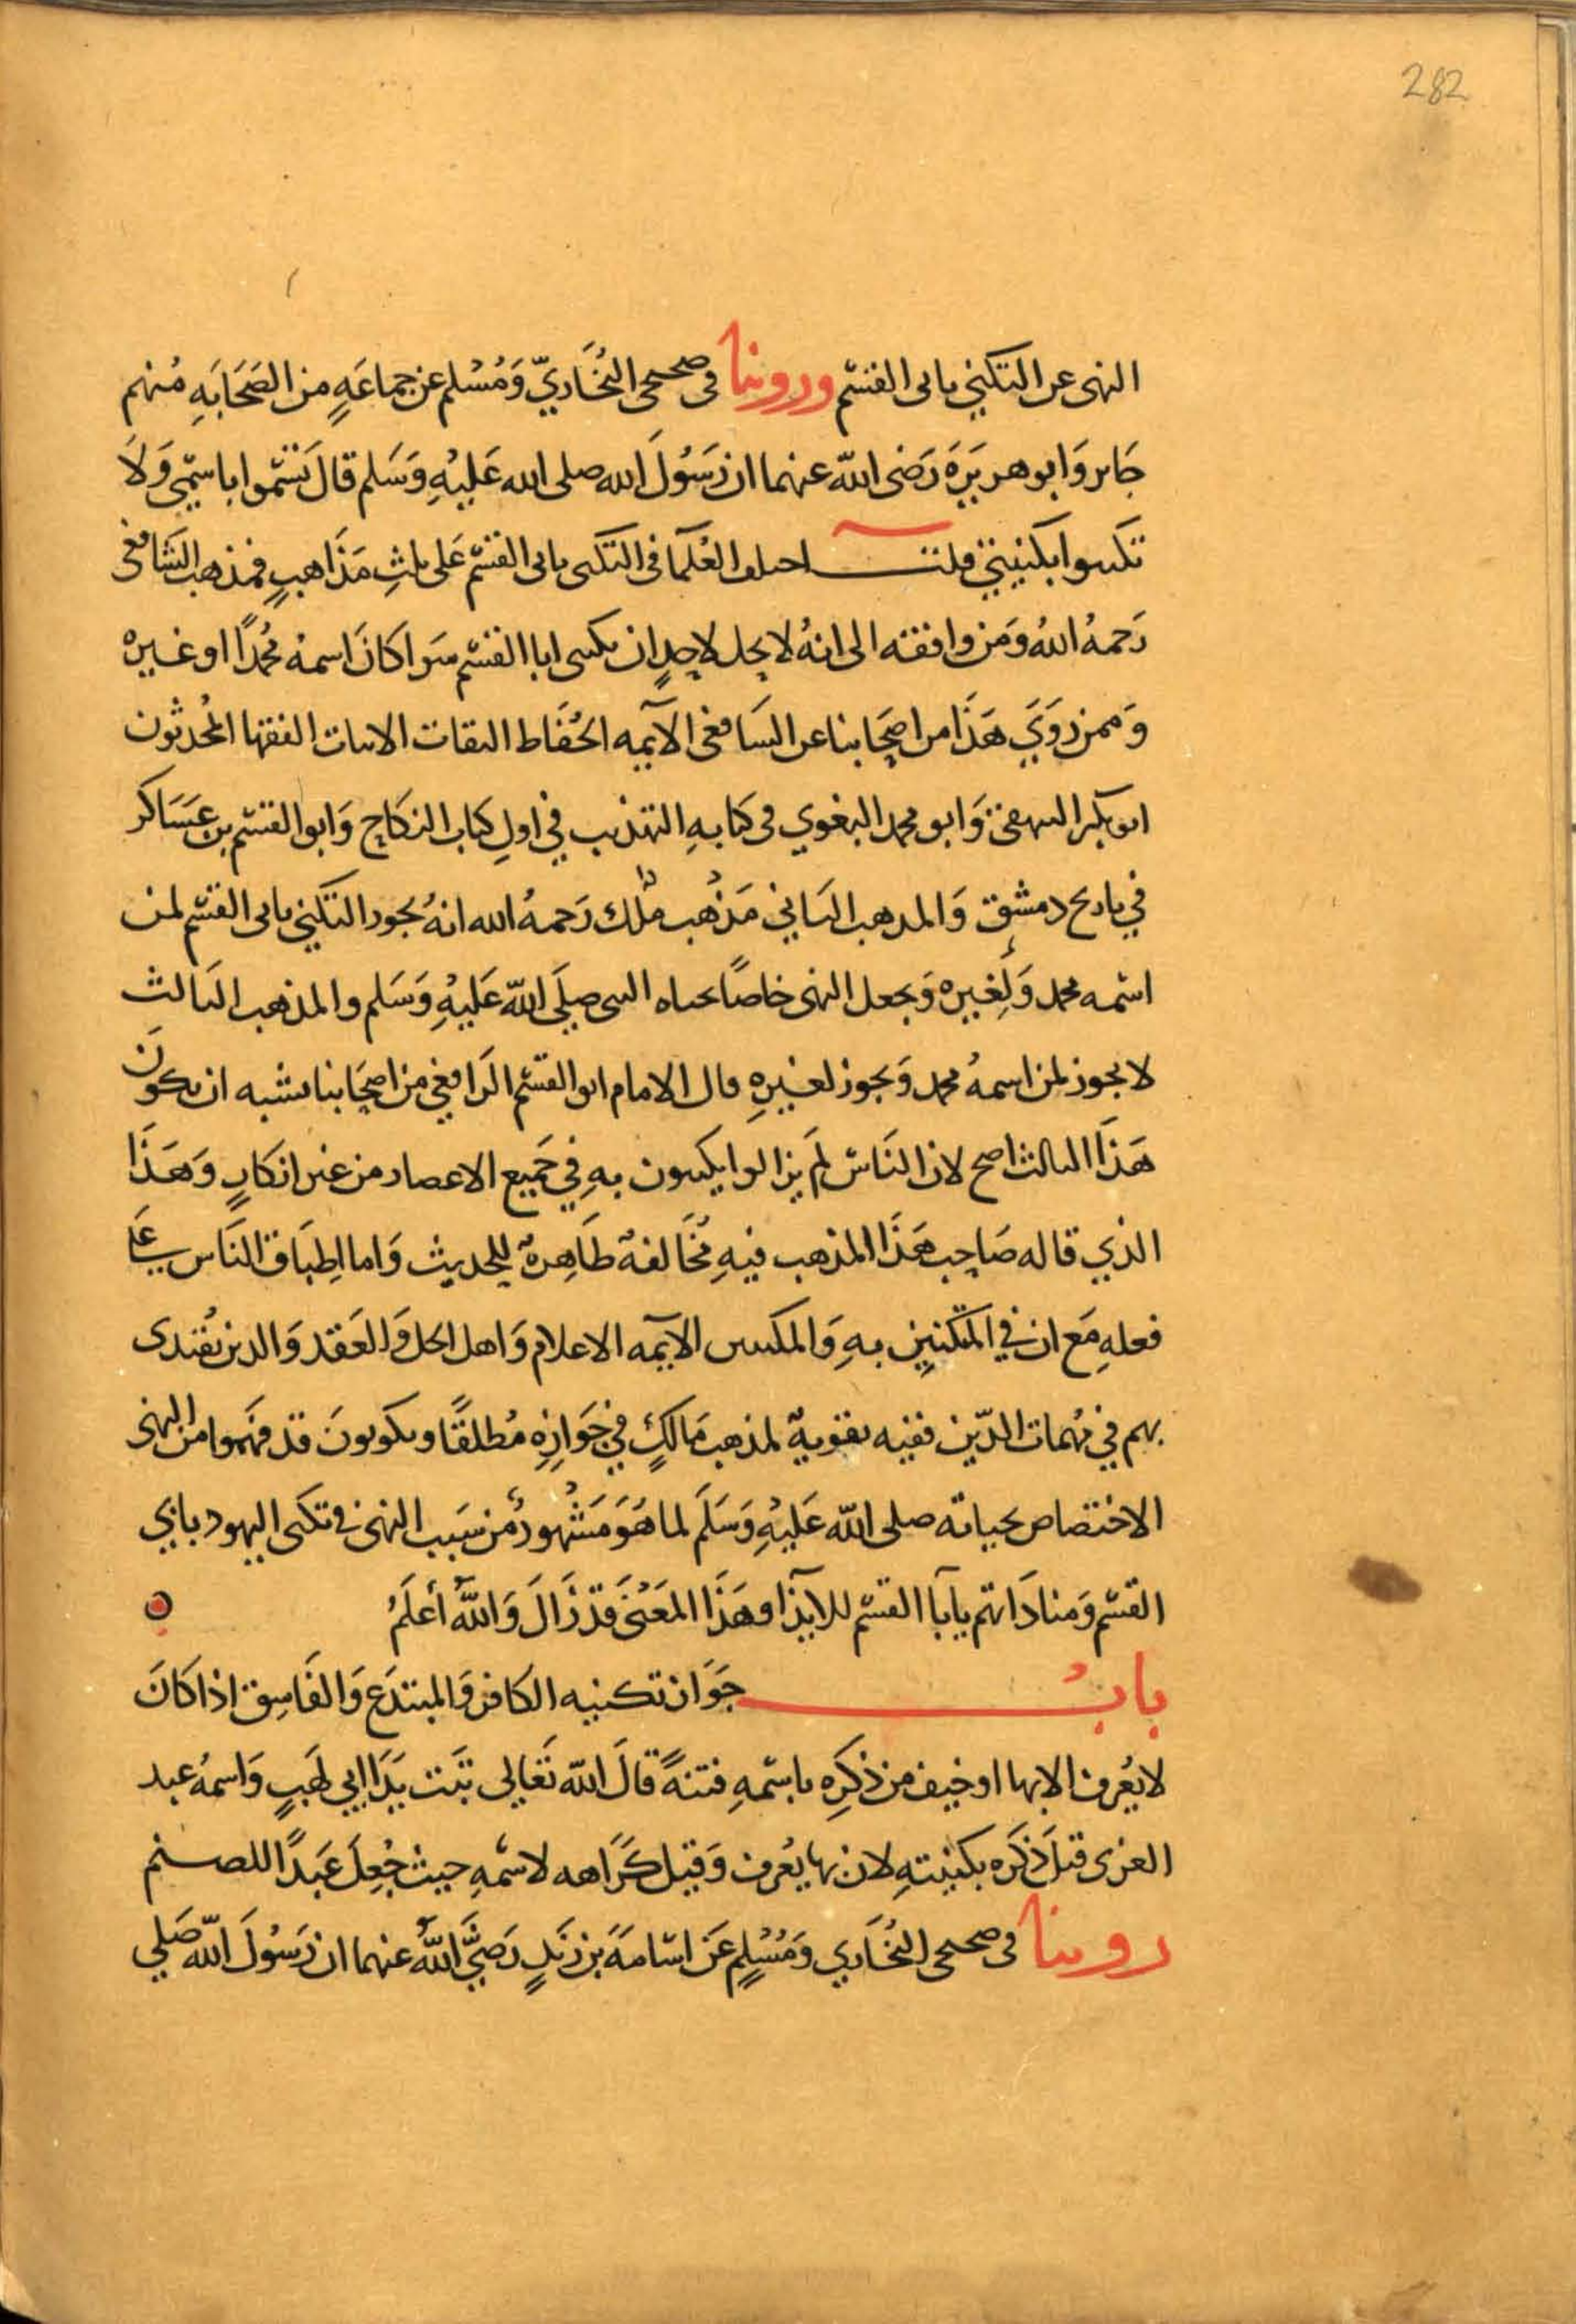 282
النهى عن التكني بابى القسم وروينا فى صحيحى البُخَاريّ وَمُسْلم عن جماعَةٍ من الصَحَابَهِ مُنهم
جَابر وَابو هريَرَة رَضى الله عنهما ان رَسُولَ الله صلى الله عَليْهِ وَسَلم قالَ تَسَمّوا باسمِى وَلَا
تكنوا بكنيتي قلت اختلف العُلمآ فى التكنى بابى القسم عَلى ثلثِ مَذَاهبٍ فمذهب الشَافعى
رَحمهُ اللهُ وَمَن وافقه الى انهُ لا يحل لاحدٍ ان يكنى ابا القسم سَوا كَانَ اسمهُ مُحمدًا او غيره
وَممن رَوَي هَذَا من اصحَابنا عن الشَافعى الآيمه الحُفَاظ الثقات الاثبات الفقها المُحدثون
ابو بكر البيهقى وَابو محمد البغوي فى كتابهِ التهذيب في اولِ كتاب النكاح وَابوا القسم بن عَسَاكر
في تاريخ دمشق وَالمذهب الثاني مَذهب ملك رَحمهُ الله انهُ يجوز التكني بابى القسم لمن
اسمه محمد وَلِغيره وَيجعل النهى خاصاً بحياه النبى صلَى الله عَليْهِ وَسَلم والمذهب الثالث
لا يجوز لمن اسمهُ محمد وَيجوز لغيرهِ قال الامام ابو القسم الرَافعي من اصحَابنا يشبه ان يكونَ
هَذَا الثالث اصح لان النَاس لَم يزالوا يكنون بهِ في جَميع الاعصار من غير انكارٍ وَهَذَا
الذي قاله صَاحب هَذَا المذهب فيهِ مُخَالفهٌ ظَاهِرهٌ للحديث وَاما اِطبَاق النَاس عَلي
فعلهِ مَع ان في المتكنيِين بهِ وَالمكنين الآيمه الاعلام وَاهل الحل وَالعَقد وَالذين يُقتدى
بهم في مُهمات الدّين ففيه تقويهٌ لمذهب مَالكٍ في جَوَازِهِ مُطلقًا ويكونونَ قد فهَموا من النهى
الاختصاص بحياته صلى الله عَليْهِ وَسَلَم لما هَوَ مَشهُورٌ من سَبب النهى فى تكنى اليهود بابي
القسم وَمنادَاتهم يابَا القسم للايذا وهَذَا المَعْنَى قدْ زَالَ وَاللهُ أعلَمُ
بابُ جَوَاز تكنيه الكافر وَالمبتدَع وَالفَاسِق اذا كَانَ
لا يُعرف الا بها او خيف من ذِكَرِه باسمهِ فتنهً قالَ الله تَعَالي تبَت يَدَا ابي لهَبٍ وَاسمهُ عبد
العزى قيلَ ذكَره بكنيتهِ لان بها يُعرف وَقيل كَرَاهه لاسْمهِ حيث جُعِلَ عَبدًا للصنم
روينا فى صحيحى البُخَاري وَمُسْلِمٍ عَن اسَامَةَ بن زَيدٍ رَضيَ اللهُ عنهما ان رَسُولَ اللهِ صَلي